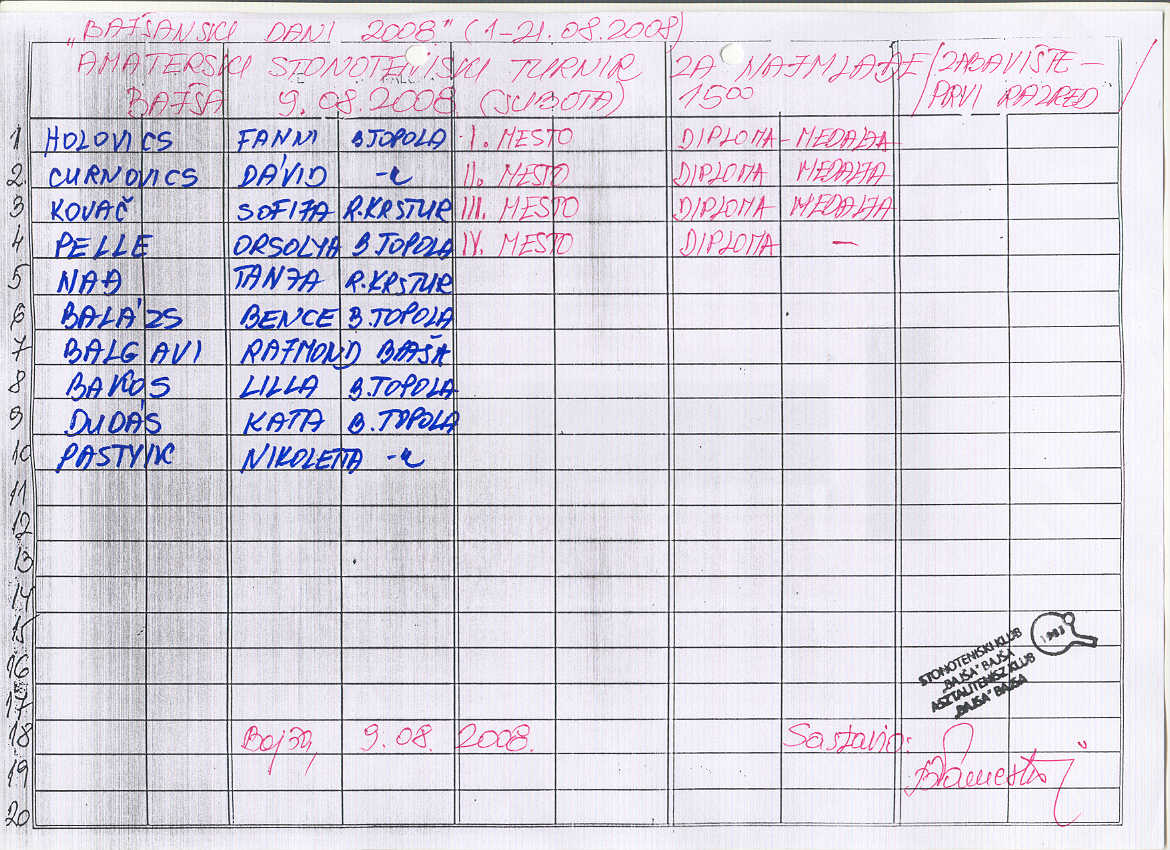 „BAJŠANSKI DANI 2008” (1-21.08.2008)
AMATERSKI STONOTENISKI TURNIR ZA NAJMLAĐE /ZABAVIŠTE -
BAJŠA 9.08.2008 (SUBOTA) 15⁰⁰ PRVI RAZRED/
1 HOLOVICS FANNI B TOPOLA I. MESTO DIPLOMA - MEDALJA
2. CURNOVICS DÁVID -"- II. MESTO DIPLOMA MEDALJA
3 KOVAČ SOFIJA R.KRSTUR III. MESTO DIPLOMA MEDALJA
4 PELLE ORSOLYA B TOPOLA IV. MESTO DIPLOMA —
5 NAĐ TANJA R.KRSTUR
6 BALÁZS BENCE B.TOPOLA
7 BALGAVI RAJMOND BAJŠA
8 BAKOS LILLA B.TOPOLA
9 DUDÁS KATA B.TOPOLA
10 PASTYIK NIKOLETTA -"-
11
12
13
14
15
16
17
18 Bajša, 9.08. 2008. Sastavio:
19
20
1983
STONOTENISKI KLUB
„BAJŠA” BAJŠA
ASZTALITENISZ KLUB
„BAJŠA” BAJŠA